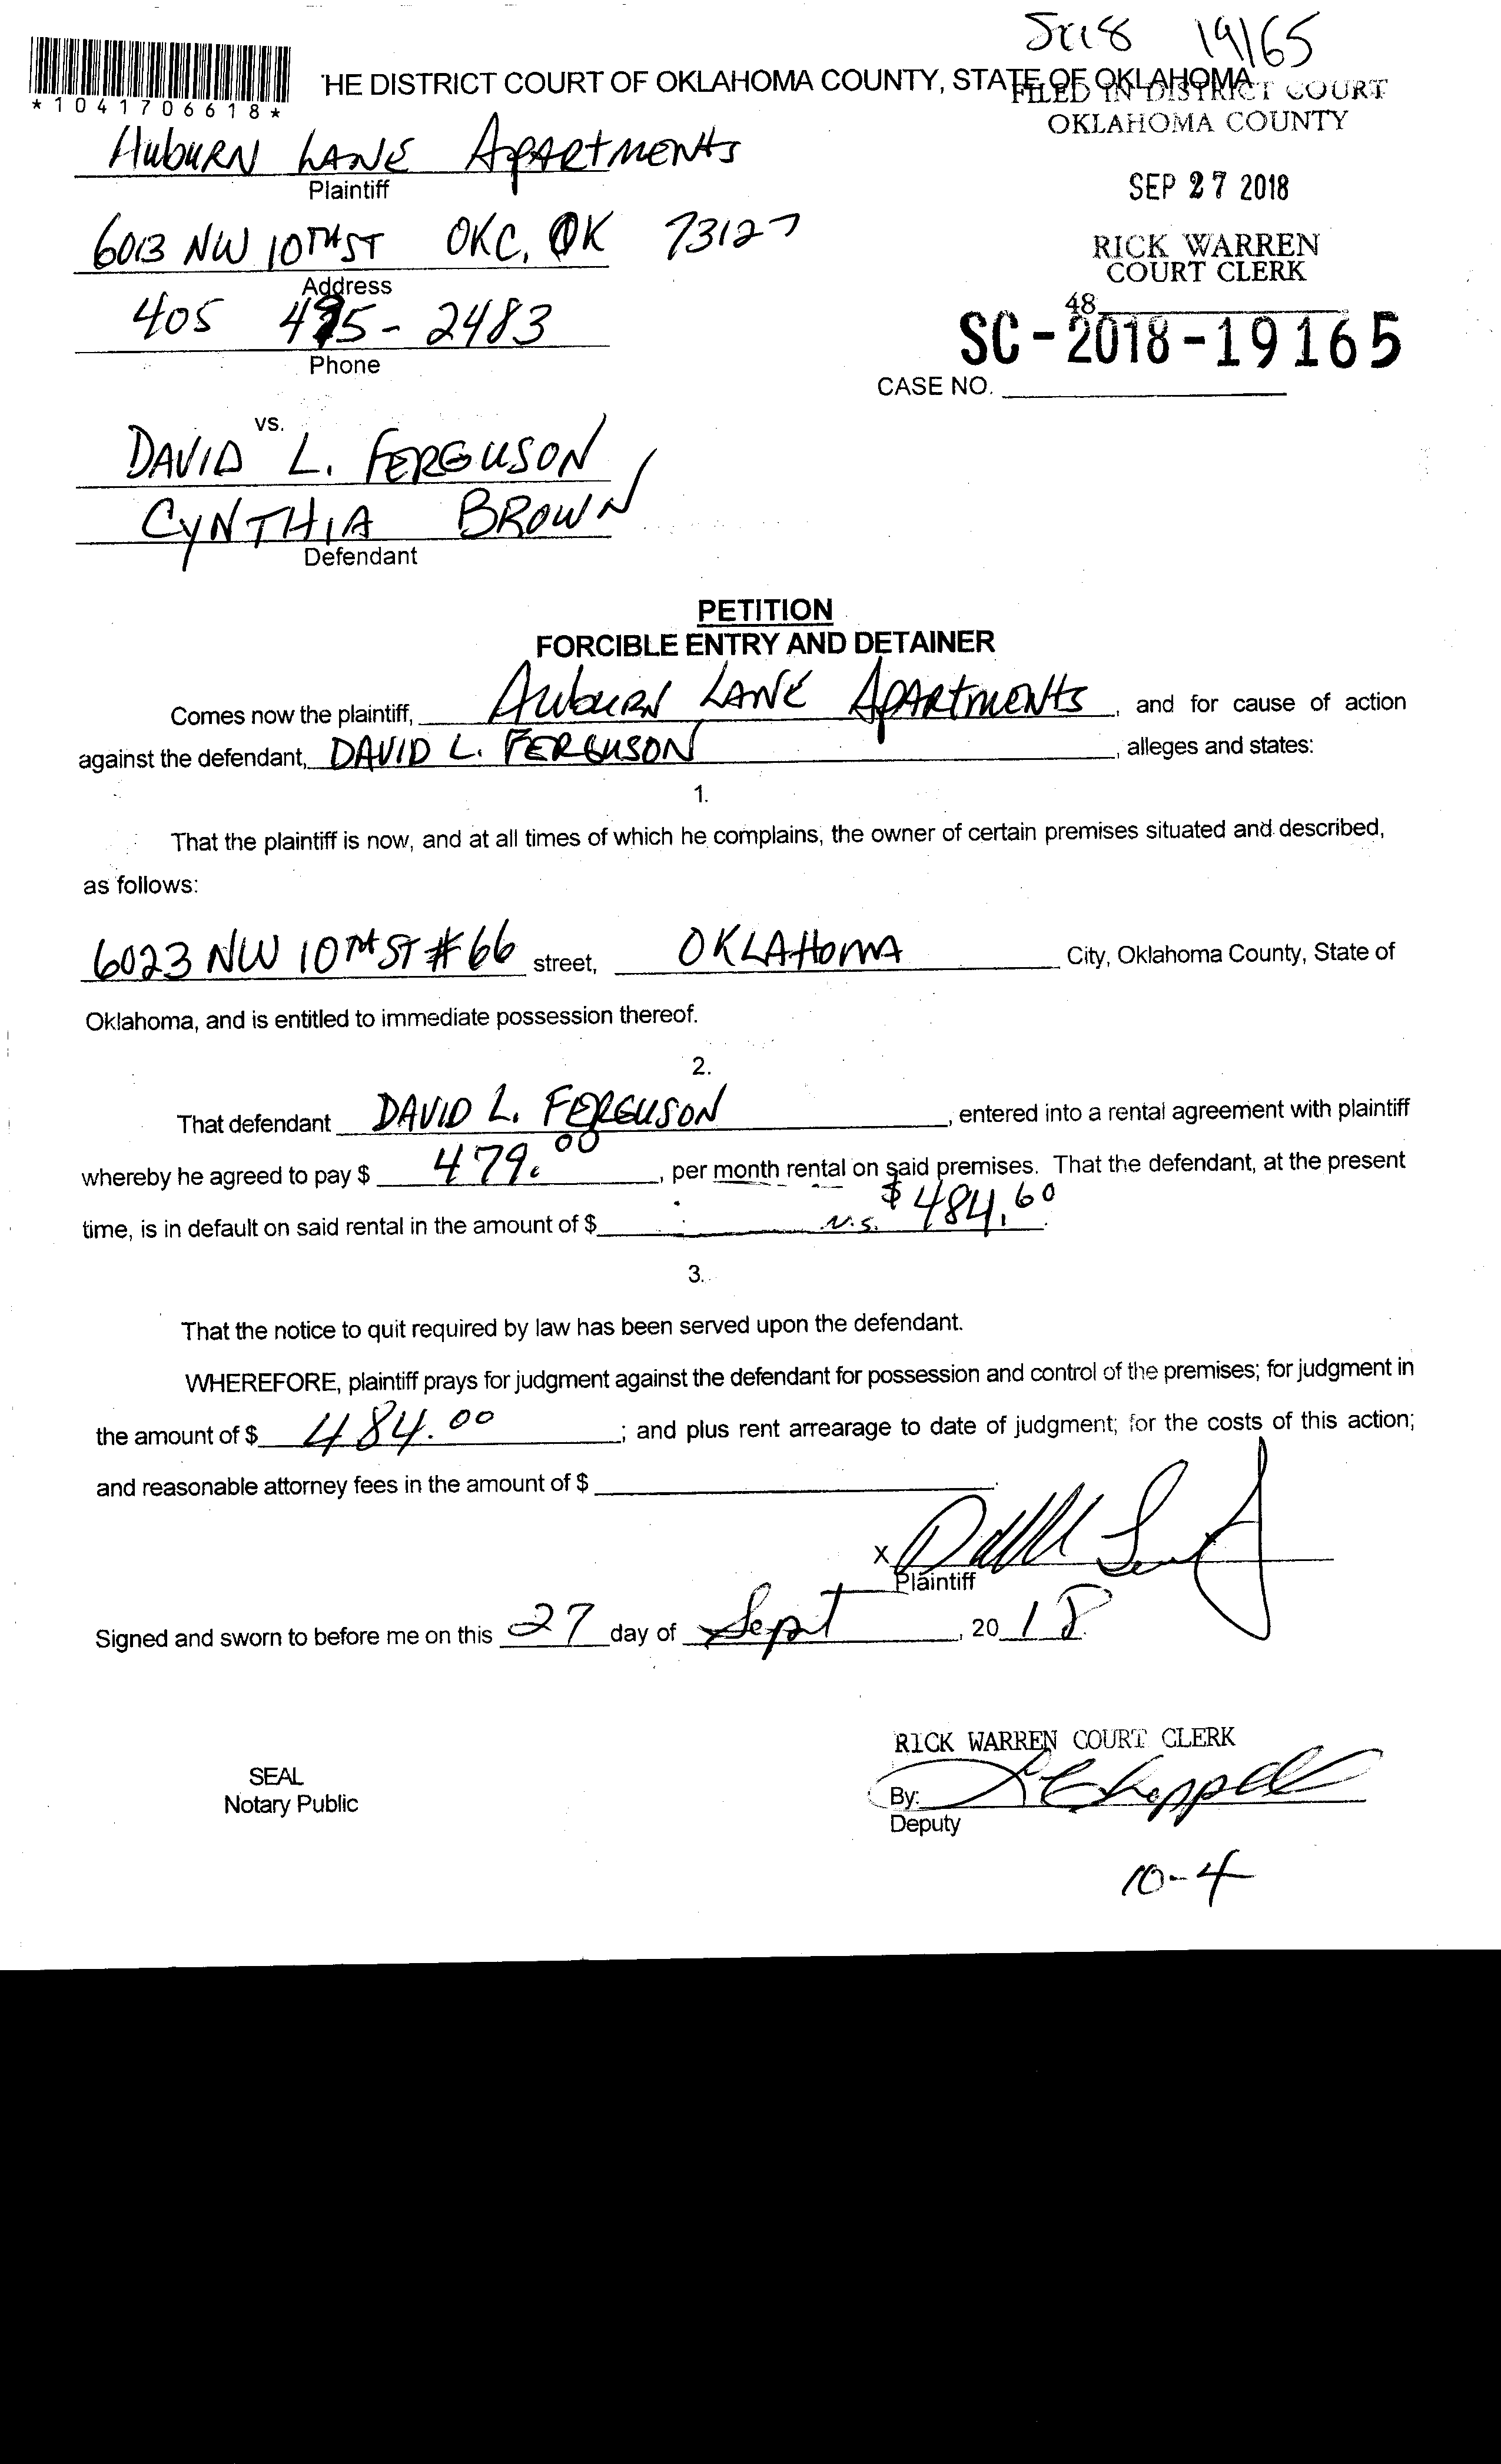 SC18 19165
*1041706618*
HE DISTRICT COURT OF OKLAHOMA COUNTY, STATE OF OKLAHOMA
FILED IN DISTRICT COURT
OKLAHOMA COUNTY
AUBURN LANE APARTMENTS
Plaintiff
SEP 27 2018
6013 NW 10TH ST OKC, OK 73127
Address
RICK WARREN
COURT CLERK
405 495-2483
Phone
48
SC-2018-19165
CASE NO.
vs.
DAVID L. FERGUSON
CYNTHIA BROWN
Defendant
PETITION
FORCIBLE ENTRY AND DETAINER
Comes now the plaintiff, Auburn LANE APARtmeNts, and for cause of action
against the defendant, DAVID L. FERGUSON, alleges and states:
1.
That the plaintiff is now, and at all times of which he complains, the owner of certain premises situated and described,
as follows:
6023 NW 10TH ST #66 street, OKLAHOMA City, Oklahoma County, State of
Oklahoma, and is entitled to immediate possession thereof.
2.
That defendant DAVID L. FERGUSON, entered into a rental agreement with plaintiff
whereby he agreed to pay $ 479.00, per month rental on said premises. That the defendant, at the present
time, is in default on said rental in the amount of $ $484.60.
3.
That the notice to quit required by law has been served upon the defendant.
WHEREFORE, plaintiff prays for judgment against the defendant for possession and control of the premises; for judgment in
the amount of $ 484.00; and plus rent arrearage to date of judgment; for the costs of this action;
and reasonable attorney fees in the amount of $
x
Plaintiff
Signed and sworn to before me on this 27 day of Sept, 20 18.
RICK WARREN COURT CLERK
SEAL
Notary Public
By:
Deputy
10-4